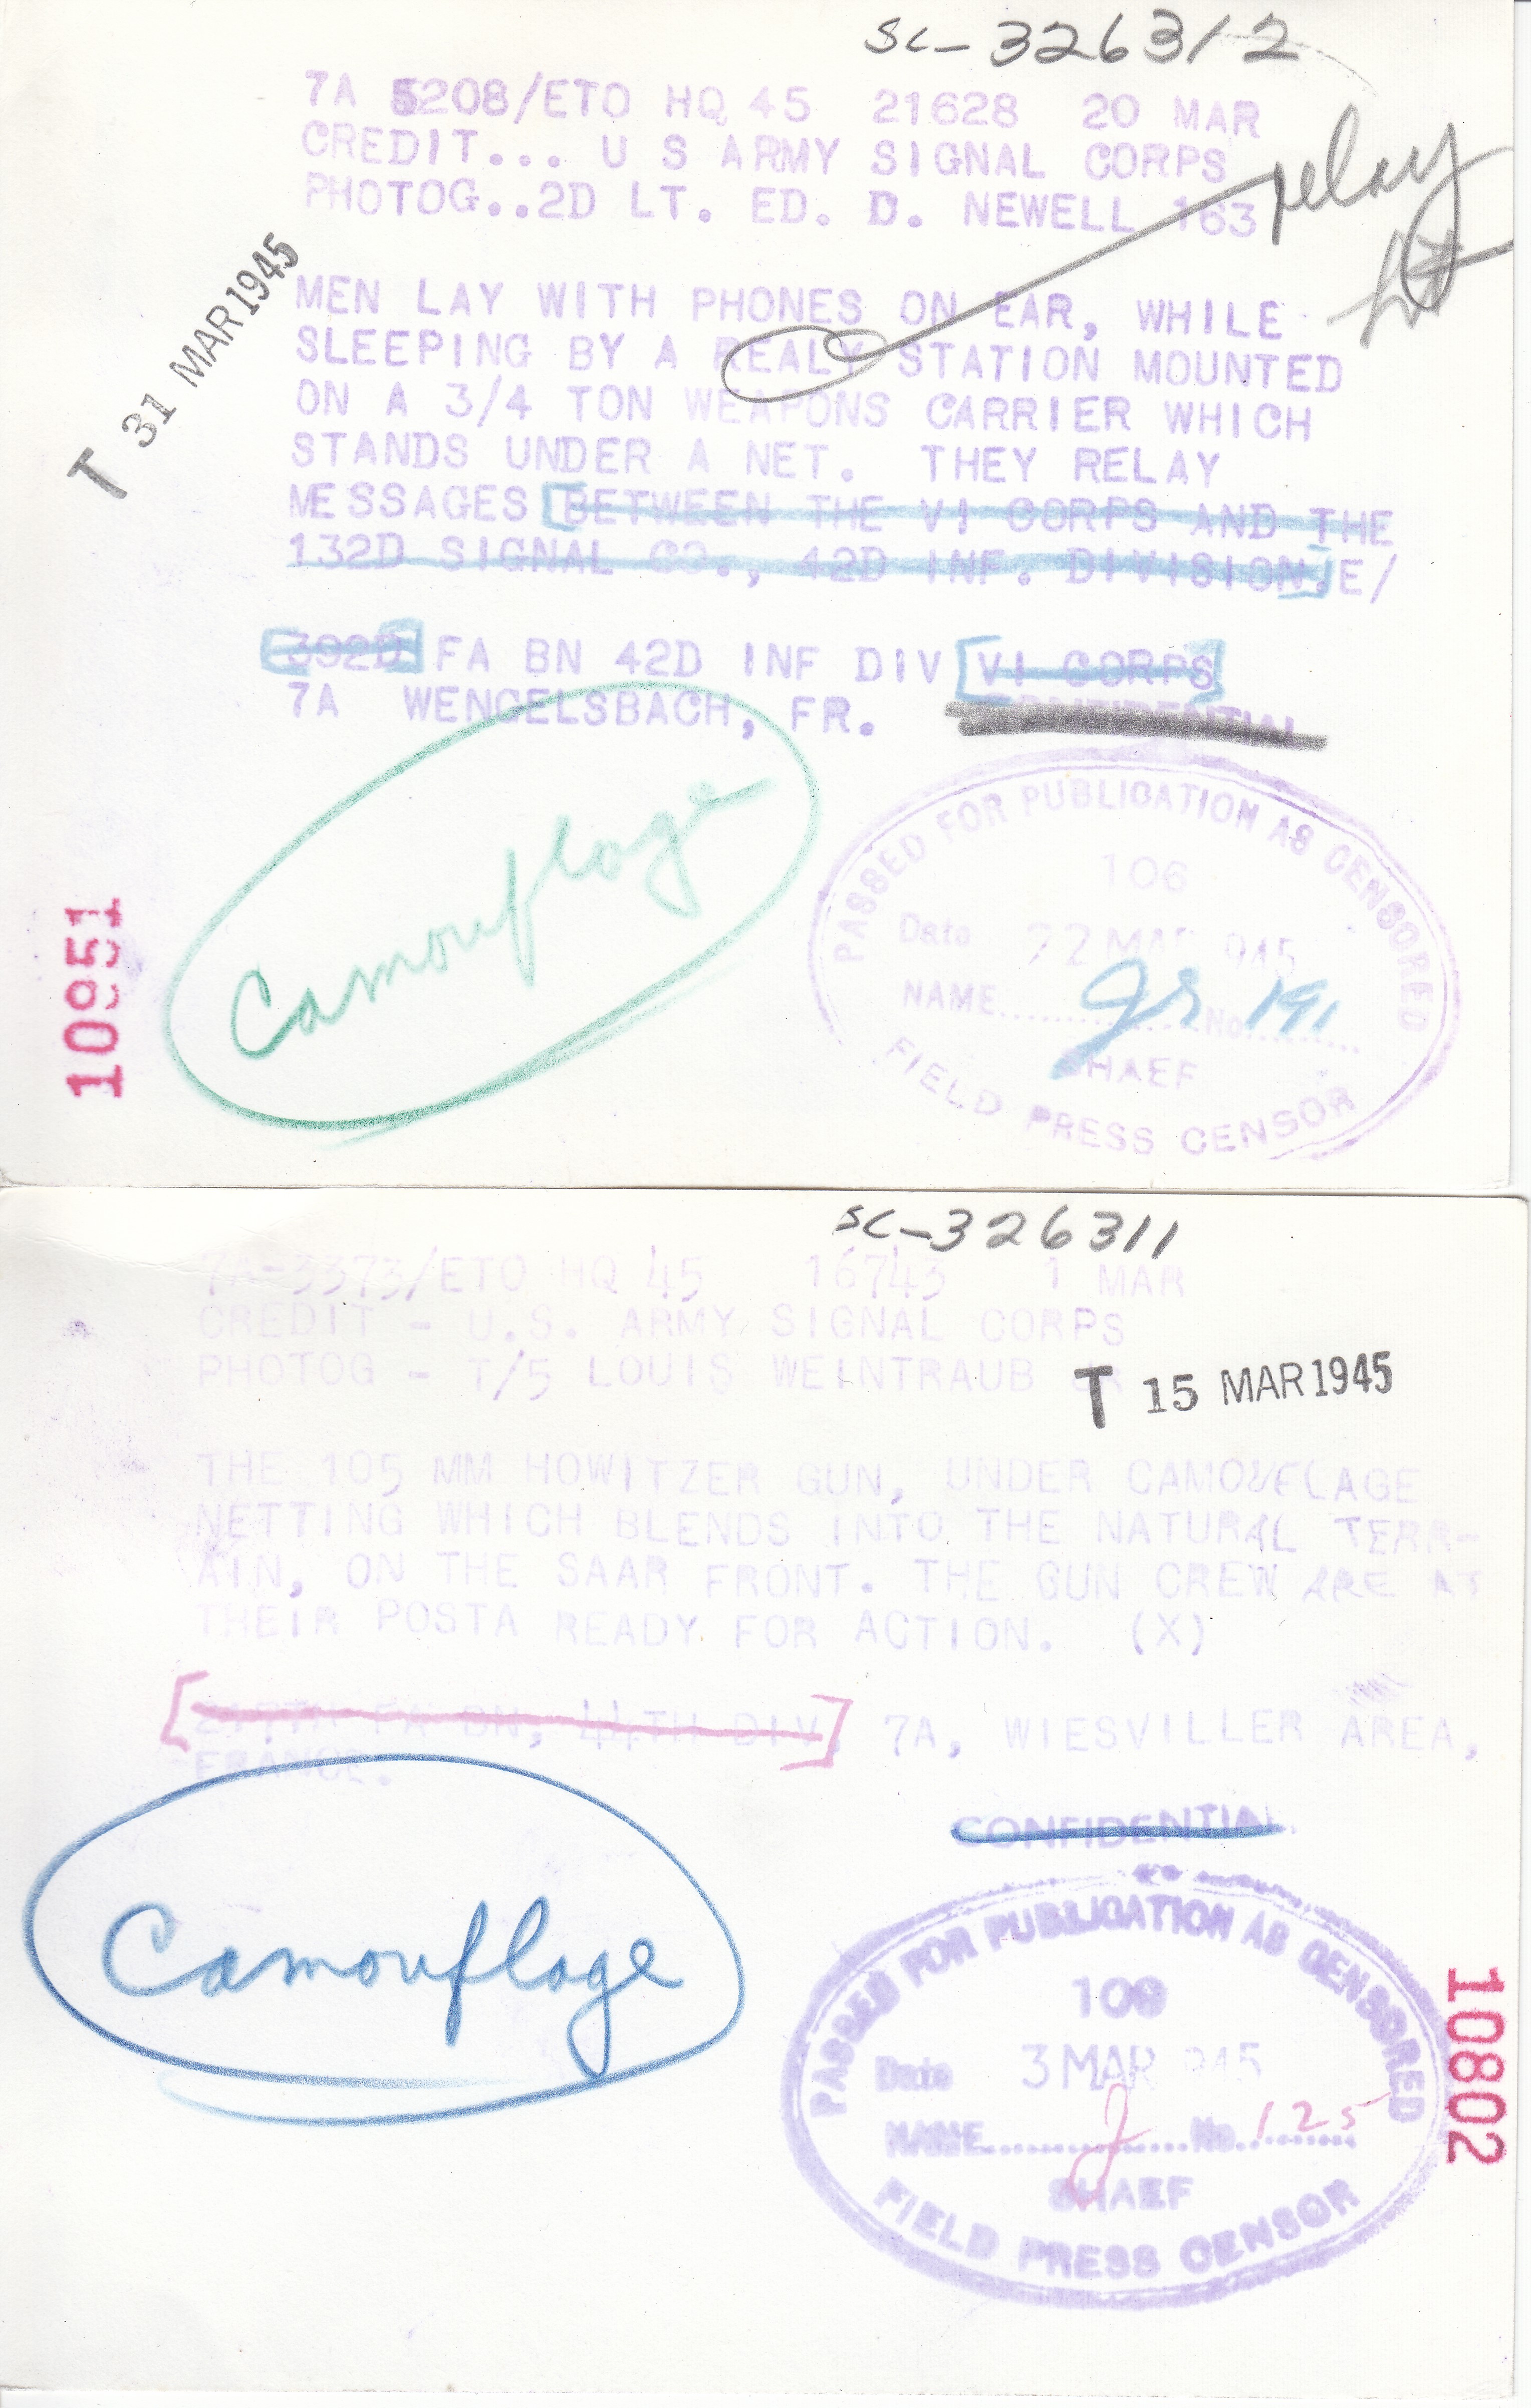 SC-326312
7A 5208/ETO HQ 45 21628 20 MAR
CREDIT... U S ARMY SIGNAL CORPS
PHOTOG..2D LT. ED. D. NEWELL 163
relay
T 31 MAR 1945
MEN LAY WITH PHONES ON EAR, WHILE
SLEEPING BY A REALY STATION MOUNTED
ON A 3/4 TON WEAPONS CARRIER WHICH
STANDS UNDER A NET. THEY RELAY
MESSAGES BETWEEN THE VI CORPS AND THE
132D SIGNAL CO., 42D INF. DIVISION.E/
392D FA BN 42D INF DIV VI CORPS
7A WENGELSBACH, FR.
CONFIDENTIAL
Camouflage
10951
PASSED FOR PUBLICATION AS CENSORED
106
Date 22 MAR 1945
NAME No 191
SHAEF
FIELD PRESS CENSOR
SC-326311
7A-3373/ETO HQ 45 16743 1 MAR
CREDIT - U.S. ARMY SIGNAL CORPS
PHOTOG - T/5 LOUIS WEINTRAUB
T 15 MAR 1945
THE 105 MM HOWITZER GUN, UNDER CAMOUFLAGE
NETTING WHICH BLENDS INTO THE NATURAL TERR-
AIN, ON THE SAAR FRONT. THE GUN CREW ARE AT
THEIR POSTA READY FOR ACTION. (X)
FA BN, 44TH DIV, 7A, WIESVILLER AREA,
FRANCE.
CONFIDENTIAL
Camouflage
PASSED FOR PUBLICATION AS CENSORED
Date 3 MAR 1945
NAME No. 125
SHAEF
FIELD PRESS CENSOR
10802